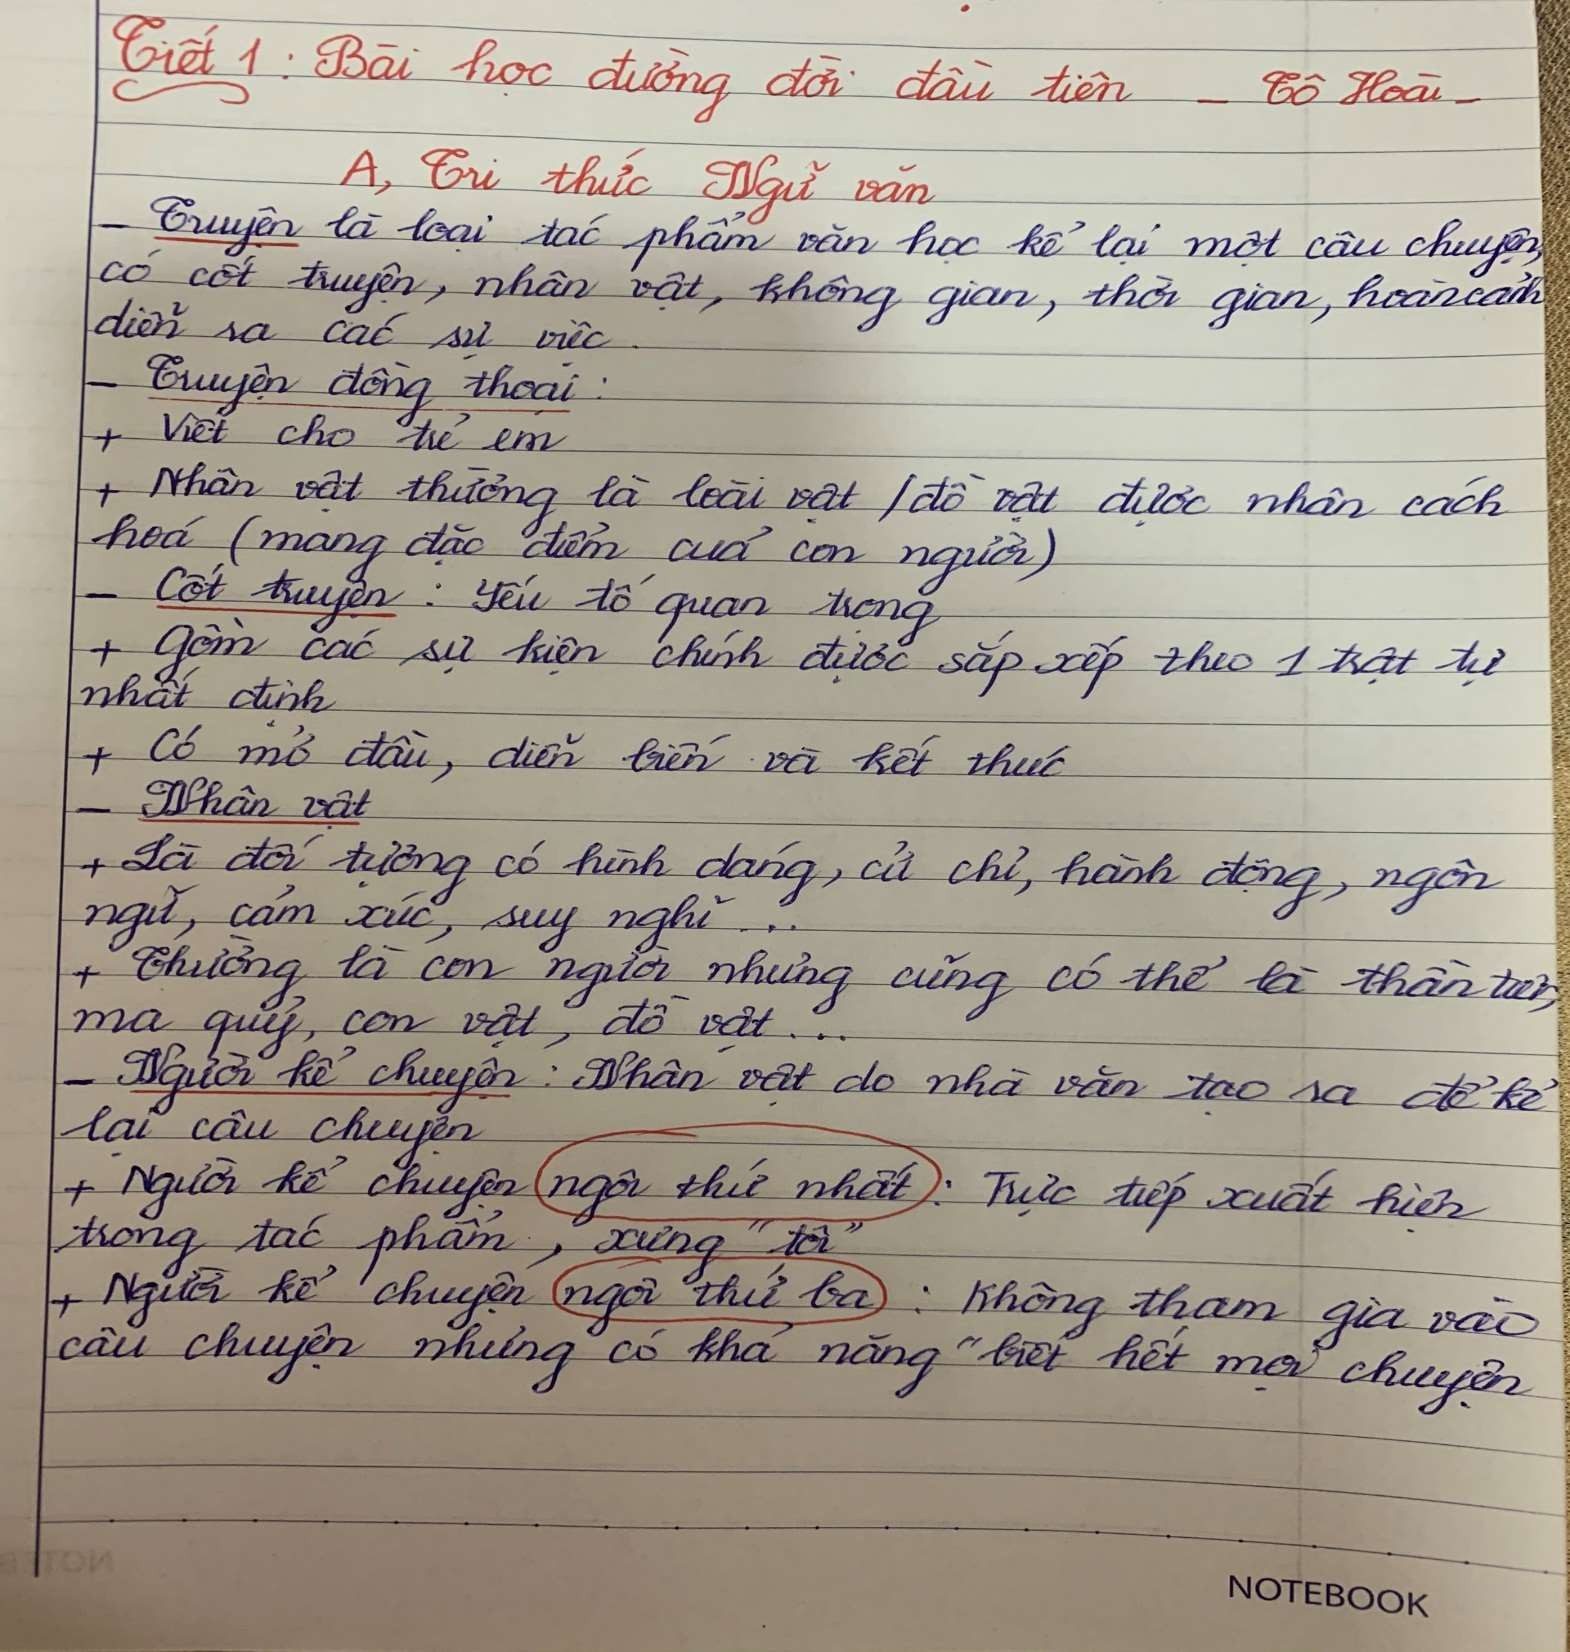 Tiết 1 : Bài học đường đời đầu tiên - Tô Hoài -
A, Tri thức Ngữ văn
- Truyện là loại tác phẩm văn học kể lại một câu chuyện,
có cốt truyện, nhân vật, không gian, thời gian, hoàn cảnh
diễn ra các sự việc.
- Truyện đồng thoại :
+ Viết cho trẻ em
+ Nhân vật thường là loài vật / đồ vật được nhân cách
hoá (mang đặc điểm của con người)
- Cốt truyện : Yếu tố quan trọng
+ Gồm các sự kiện chính được sắp xếp theo 1 trật tự
nhất định
+ Có mở đầu, diễn biến và kết thúc
- Nhân vật
+ Là đối tượng có hình dáng, cử chỉ, hành động, ngôn
ngữ, cảm xúc, suy nghĩ ...
+ Thường là con người nhưng cũng có thể là thần tiên,
ma quỷ, con vật, đồ vật ...
- Người kể chuyện : Nhân vật do nhà văn tạo ra để kể
lại câu chuyện
+ Người kể chuyện ngôi thứ nhất : Trực tiếp xuất hiện
trong tác phẩm, xưng "tôi"
+ Người kể chuyện ngôi thứ ba : Không tham gia vào
câu chuyện nhưng có khả năng "biết hết mọi chuyện
NOTEBOOK